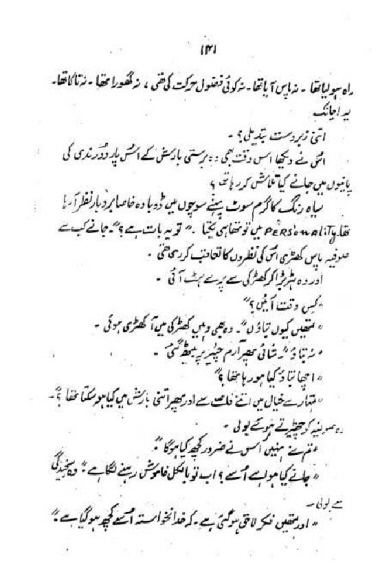 ۱۴۱
راہ ہولیا تھا ۔ نہ پاس آیا تھا ۔ نہ کوئی فضول حرکت کی تھی ، نہ گھورا تھا ۔ نہ تاکا تھا ۔
یہ اچانک
اتنی زبردست تبدیلی ؟ ۔
اس نے دیکھا اس وقت بھی وہ برستی بارش کے اس پار دور ندی کی
پانیوں میں جانے کیا تلاش کر رہا تھا ؟
سیاہ رنگ کا گرم سوٹ پہنے سوچوں میں ڈوبا وہ خاصا بردبار نظر آ رہا
تھا PERSONALITY میں تو تھا ہی یکتا ۔ " تو یہ بات ہے ؟" ۔ جانے کب سے
صوفیہ پاس کھڑی اس کی نظروں کا تعاقب کر رہی تھی ۔
اور وہ ہڑبڑا کر کھڑکی سے پرے ہٹ آئی ۔
" کس وقت آئیں ؟"
" تمھیں کیوں بتاؤں " ۔ وہ بھی وہیں کھڑکی میں آ کھڑی ہوئی ۔
" نہ بتاؤ " ۔ شانی پھر آرم چیئر پر بیٹھ گئی ۔
" اچھا بتاؤ کیا ہو رہا تھا ؟"
" تمہارے خیال میں اتنے فاصلے سے اور پھر اتنی بارش میں کیا ہو سکتا تھا ؟" ۔
وہ صوفیہ کو چھیڑتے ہوئے بولی ۔
" تم نے نہیں اس نے ضرور کچھ کیا ہوگا "
" جانے کیا ہوا ہے اُسے ؟ اب تو بالکل خاموش رہنے لگا ہے " ۔ وہ سنجیدگی
سے بولی ۔
" اور تمھیں فکر لاحق ہو گئی ہے ۔ کہ خدانخواستہ اُسے کچھ ہو گیا ہے " ۔